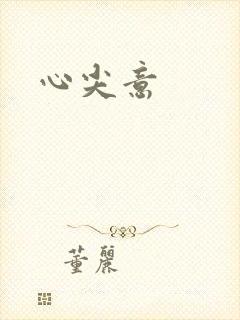 心尖意
董丽